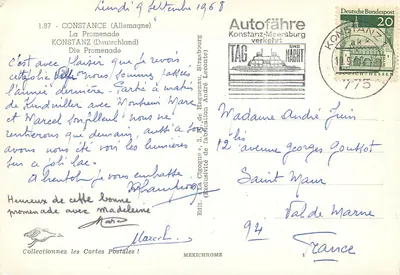 Lundi 9 Septembre 1968
1.87 - CONSTANCE (Allemagne)
La Promenade
KONSTANZ (Deutschland)
Die Promenade
C'est avec plaisir que je revois
cette jolie ville nous sommes passées
l'année dernière. Partie à matin
de avec Monsieur Marc
et Marcel nous ne
rentrerons que demain, aussi
avons nous été voir les lumières
sur ce joli lac.
A bientôt je vous embrasse
Heureux de cette bonne
promenade avec Madeleine
Marc
Marcel
Collectionnez les Cartes Postales !
MEXICHROME
Edit. "La Cigogne",
Autofähre
Konstanz-Meersburg
verkehrt
TAG UND NACHT
KONSTANZ
775
Deutsche Bundespost
20
Madame André Juin
12 avenue Georges
Saint Maur
Val de Marne
94
France